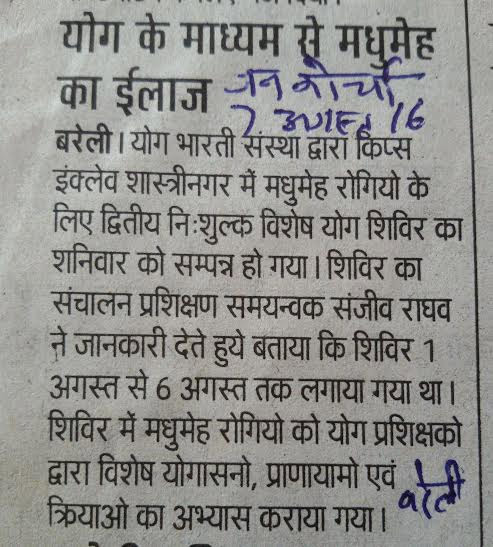 योग के माध्यम से मधुमेह
का ईलाज जन मोर्चा
7 अगस्त 16
बरेली। योग भारती संस्था द्वारा किप्स
इंक्लेव शास्त्रीनगर में मधुमेह रोगियो के
लिए द्वितीय निःशुल्क विशेष योग शिविर का
शनिवार को सम्पन्न हो गया। शिविर का
संचालन प्रशिक्षण समयन्वक संजीव राघव
ने जानकारी देते हुये बताया कि शिविर 1
अगस्त से 6 अगस्त तक लगाया गया था।
शिविर में मधुमेह रोगियो को योग प्रशिक्षको
द्वारा विशेष योगासनो, प्राणायामो एवं
क्रियाओ का अभ्यास कराया गया। बरेली